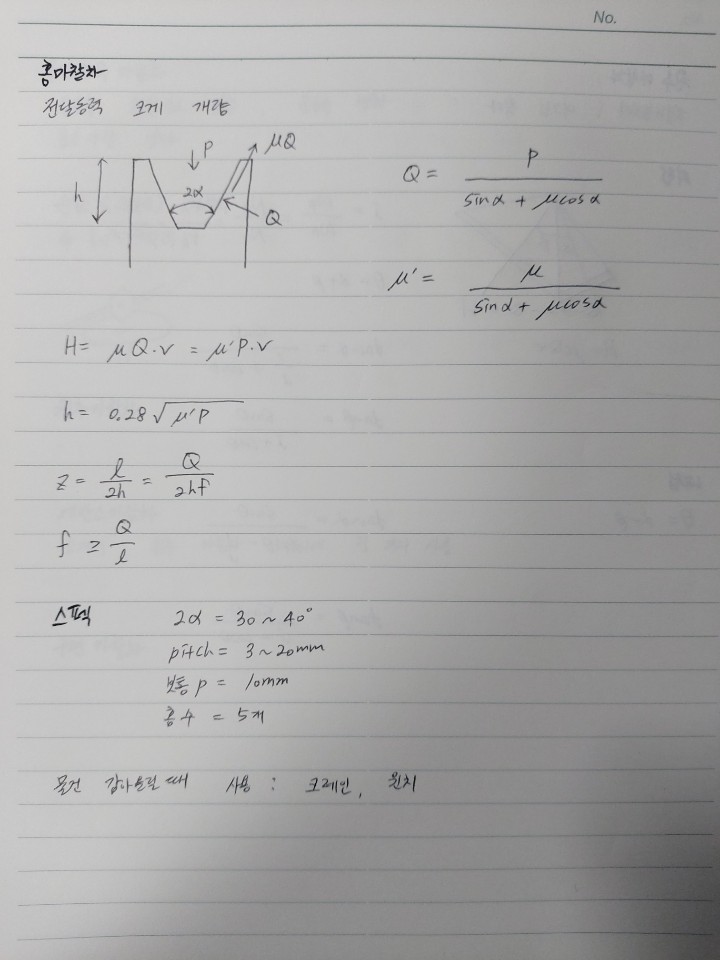 No.
홈마찰차
전달동력 크게 개량
P
μQ
h
2α
Q
Q = P / (sinα + μcosα)
μ' = μ / (sinα + μcosα)
H = μQ·v = μ'P·v
h = 0.28√(μ'P)
z = l/2h = Q/2hf
f ≥ Q/l
스펙 2α = 30 ~ 40°
pitch = 3 ~ 20mm
보통 p = 10mm
홈 수 = 5개
물건 감아올릴 때 사용 : 크레인, 윈치